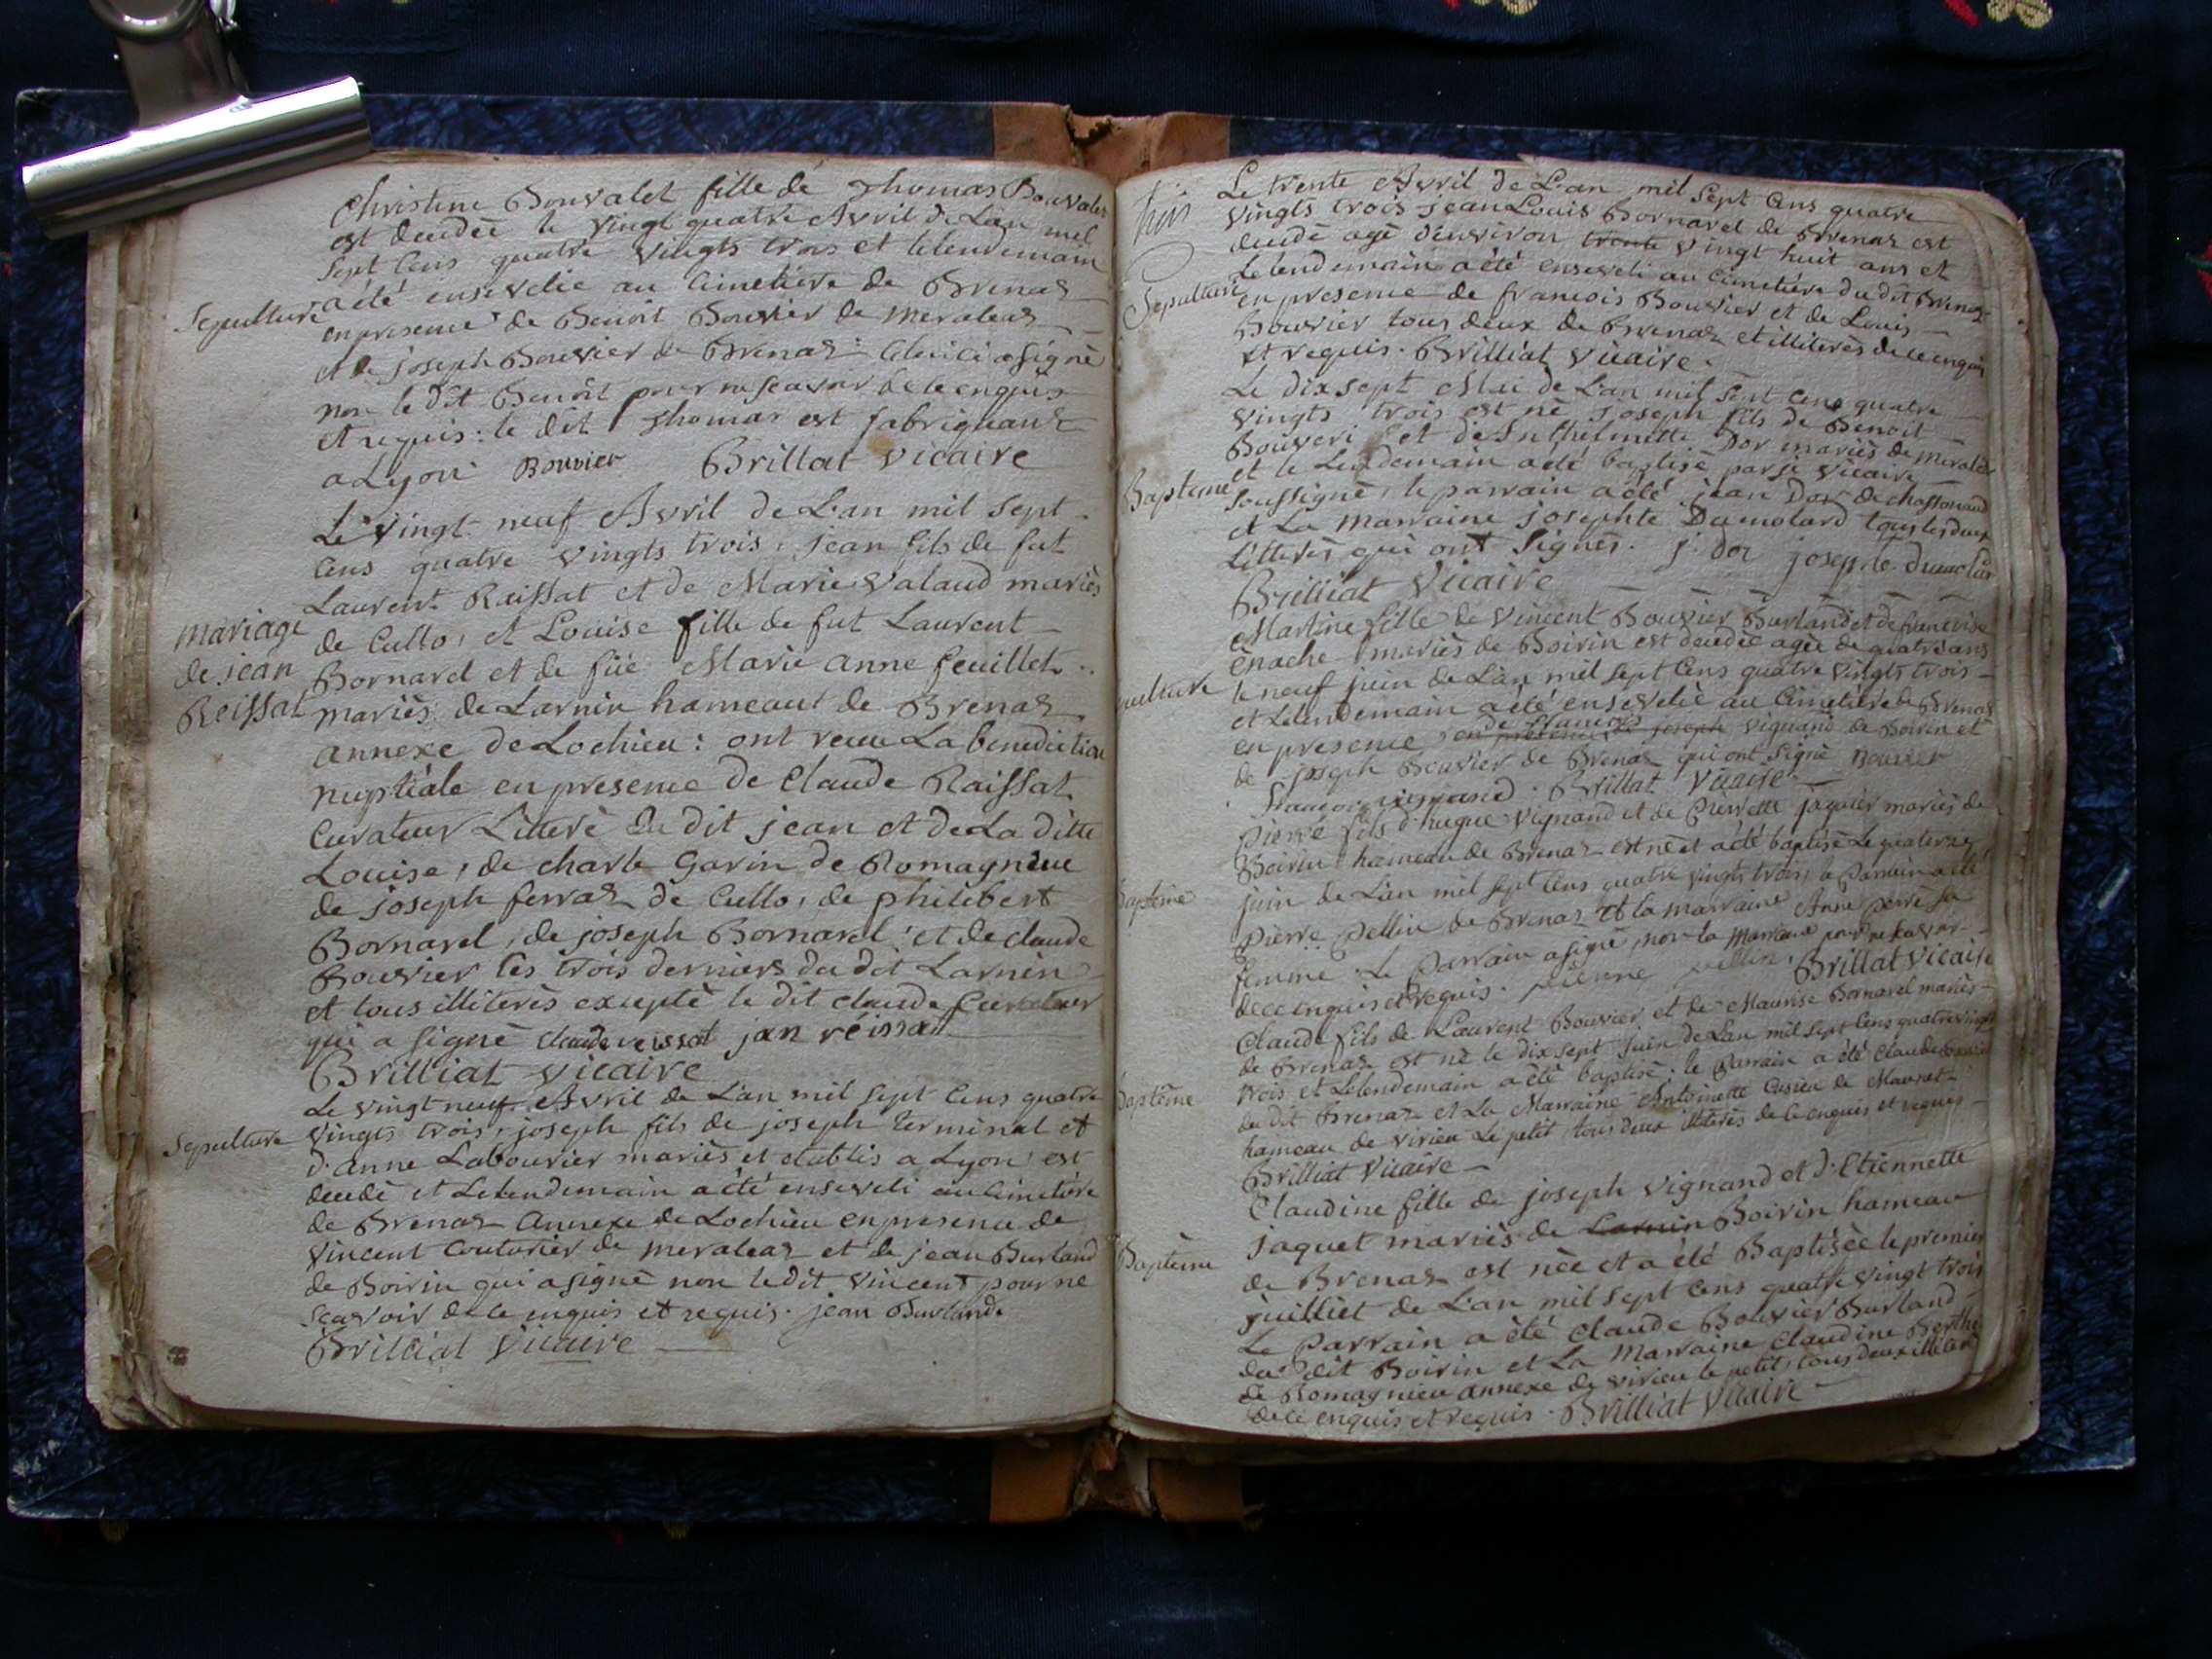 Christine Bonvalet fille de Thomas Bonvalet
est decedée le vingt quatre Avril de L'an mil
sept cens quatre vingts trois et lelendemain
Sepulture
a été ensevelie au Cimetiére de Brenaz
en presence de Benoit Bouvier de Meraleaz
et de joseph Bouvier de Brenaz: Celuici a signé
non le dit Benoit pour ne scavoir de ce enquis
et requis: le dit Thomas est fabriquant
a Lyon Bouvier Brillat vicaire
Le vingt neuf Avril de L'an mil sept
cens quatre vingts trois, jean fils de fut
Laurent Raissat et de Marie Valaud mariés
mariage
de jean
Reissat
de Cullo, et Louise fille de fut Laurent
Bornarel et de füe Marie anne feuillet
mariés de Larnin hameaut de Brenaz
annexe de Lochieu: ont recue La benediction
nuptiale en presence de Claude Raissat
Curateur Litteré du dit jean et de La ditte
Louise, de charle Garin de Romagnieu
de joseph ferraz de Cullo, de philibert
Bornarel, de joseph Bornarel, et de claude
Bouvier les trois derniers du dit Larnin
et tous illiterés excepté le dit claude Curateur
qui a signé claude reissat jan réissat
Brilliat vicaire
Le vingt neuf Avril de L'an mil sept cens quatre
Sepulture
vingts trois, joseph fils de joseph terminal et
d'anne Labouvier mariés et etablis a Lyon est
decedé et Lelendemain a été enseveli au Cimetiére
de Brenaz Annexe de Lochieu en presence de
Vincent Couturier de meraleaz et de jean Burland
de Boirin qui a signé non le dit Vincent pour ne
scavoir de ce enquis et requis. jean Burland
Brilliat Vicaire
Le trente Avril de L'an mil sept cens quatre
vingts trois jean Louis Bornarel de Brenaz est
decedé agé d'environ trente vingt huit ans et
Sepulture
Lelendemain a été enseveli au Cimetiére du dit Brenaz
en presence de francois Bouvier et de Louis
Bouvier tous deux de Brenaz et illiterés de ce enquis
et requis. Brilliat vicaire.
Le dix sept Mai de L'an mil sept cens quatre
vingts trois est né joseph fils de Benoit
Bouveri et de Dor mariés de merale
Bapteme
et le Lendemain a été baptisé par je vicaire
soussigné, le parrain a été jean Dor de
et La marraine josephte Dumolard tous les deux
litterés qui ont signés. j. dor josephte dumolar
Brilliat Vicaire
Martine fille de Vincent Bouvier Burland et de francoise
enache mariés de Boirin est decedée agée de quatre ans
le neuf juin de L'an mil sept cens quatre vingts trois
et Lelendemain a été ensevelie au Cimetiére de Brenaz
en presence en presence de joseph de francois vignand de Boirin et
de joseph Bouvier de Brenaz qui ont signé Bouvier
francois vignand. Brillat Vicaire
Pierre fils d'hugue Vignand et de Pierrette jaquier mariés de
Boirin hameau de Brenaz est né et a été baptisé Le quatorze
Bapteme
juin de L'an mil sept cens quatre vingts trois, le Parrain a été
Pierre Pellin de Brenaz et la marraine Anne perré sa
femme. Le Parrain a signé, non la Marraine pour ne scavoir
de ce enquis et requis. pierre pellin. Brillat vicaire
Claude fils de Laurent Bouvier et de Maurise Bornarel mariés
de Brenaz est né le dix sept juin de L'an mil sept cens quatre vingt
Baptême
trois et Lelendemain a été baptisé. le Parrain a été Claude
du dit Brenaz et La Marraine Antoinette Cusieu de Mauret
hameau de virieu Le petit tous deux illiterés de ce enquis et requis
Brilliat Vicaire
Claudine fille de joseph vignand et d'Etiennette
jaquet mariés de Larnin Boirin hameau
Baptême
de Brenaz est née et a été Baptisée le premier
juilliet de L'an mil sept cens quatre vingt trois
Le Parrain a été claude Bouvier Burland
du dit Boirin et La marraine claudine Berthe
de Romagnieu annexe de virieu le petit tous deux illiterés
de ce enquis et requis. Brilliat vicaire